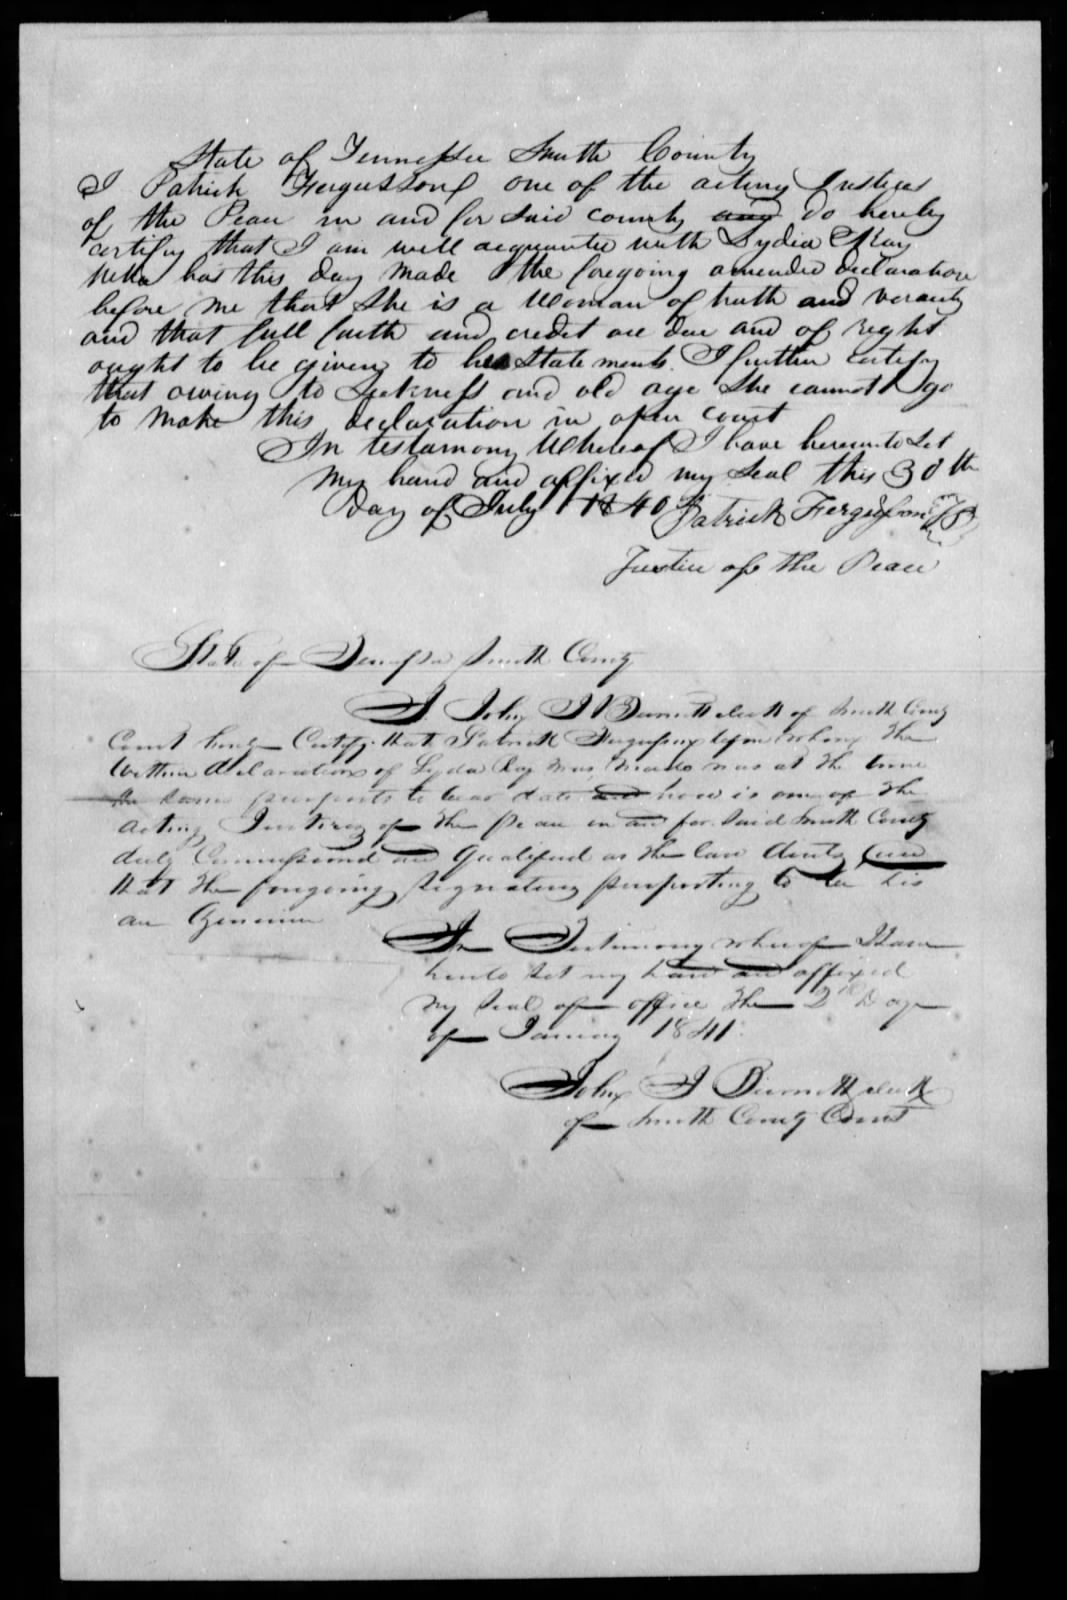 State of Tennessee Smith County
I Patrick Fergusson one of the acting Justices
of the Peace in and for said county and do hereby
certify that I am well acquantee with Lydia Kay
who has this day made the foregoing amended declaration
before me that she is a woman of truth and veracity
and that full faith and credit are due and of right
ought to be given to her statements. I further certify
that owing to Sickness and old age she cannot go
to make this declaration in open court
In testamony Whereof I have hereunto set
my hand and affixed my seal this 30th
Day of July 1840 Patrick Fergusson
Justice of the Peace
State of Tennessee Smith County
I John J Burnett Clerk of Smith County
Court hereby Certify that Patrick Fergusson before whom the
Within declaration of Lyda Kay was made was at the time
the same purports to bear date and now is one of the
acting Justices of the peace in and for said Smith County
duly Commissioned and Qualified as the law directs and
that the foregoing signature purporting to be his
are Genuine
In Testimony whereof I have
hereto set my hand and affixed
my seal of office the 2nd Day
of January 1841.
John J Burnett Clerk
of Smith County Court